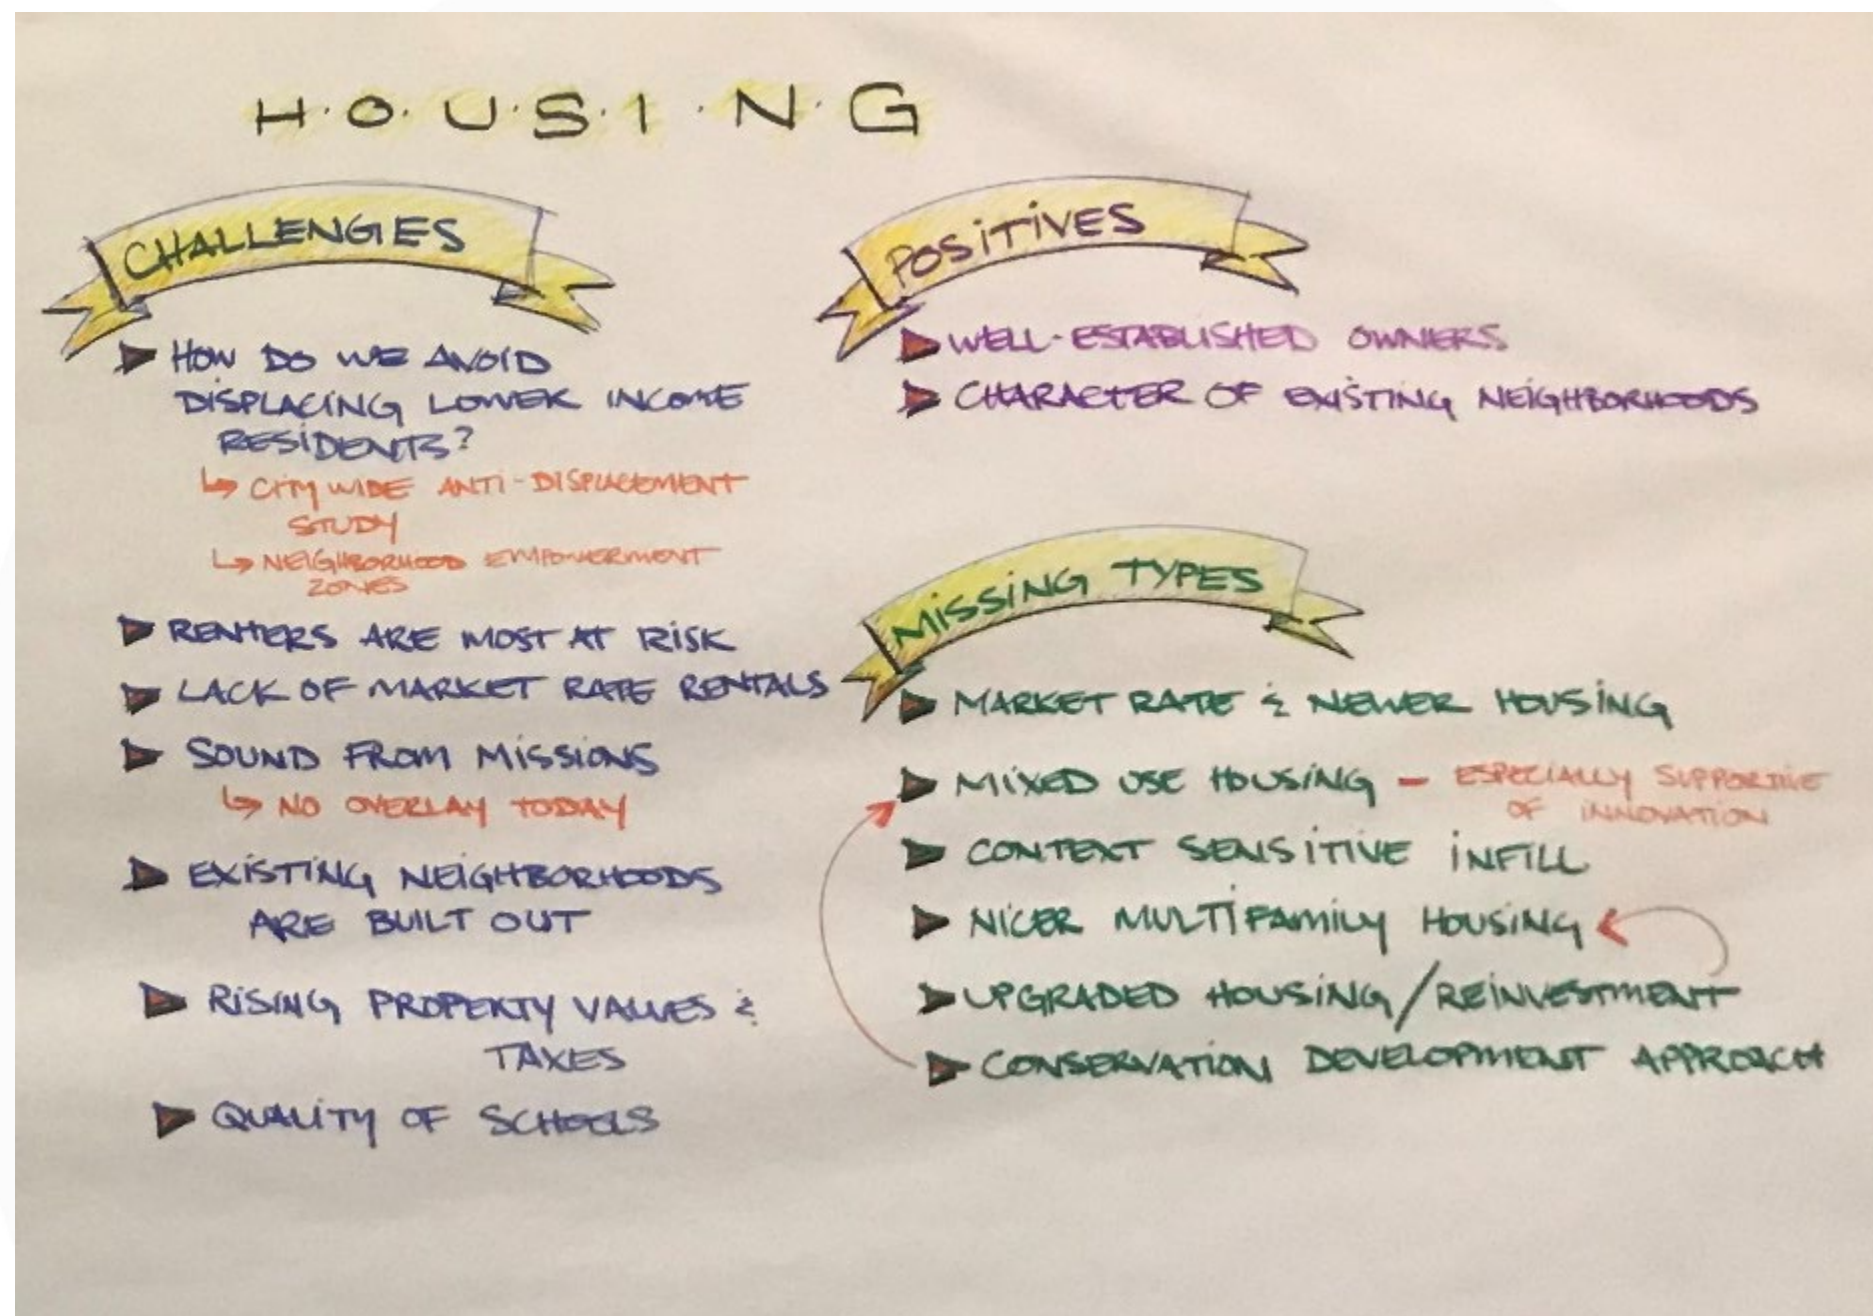 H·O·U·S·I·N·G
CHALLENGES
HOW DO WE AVOID
DISPLACING LOWER INCOME
RESIDENTS?
↳ CITY WIDE ANTI-DISPLACEMENT
STUDY
↳ NEIGHBORHOOD EMPOWERMENT
ZONES
RENTERS ARE MOST AT RISK
LACK OF MARKET RATE RENTALS
SOUND FROM MISSIONS
↳ NO OVERLAY TODAY
EXISTING NEIGHBORHOODS
ARE BUILT OUT
RISING PROPERTY VALUES &
TAXES
QUALITY OF SCHOOLS
POSITIVES
WELL-ESTABLISHED OWNERS
CHARACTER OF EXISTING NEIGHBORHOODS
MISSING TYPES
MARKET RATE & NEWER HOUSING
MIXED USE HOUSING - ESPECIALLY SUPPORTIVE
OF INNOVATION
CONTEXT SENSITIVE INFILL
NICER MULTIFAMILY HOUSING
UPGRADED HOUSING/REINVESTMENT
CONSERVATION DEVELOPMENT APPROACH